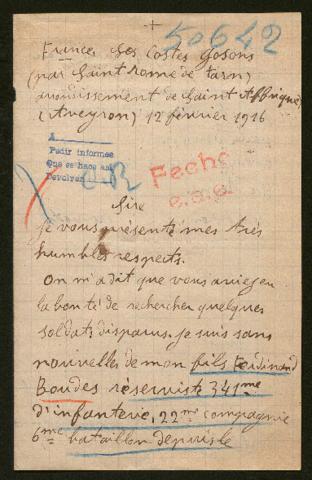 +
50642
France, Les Costes Gozons
(par Saint rome de tarn)
arrondissement de Saint Affrique,
(Aveyron) 12 février 1916
A
Pedir informes
Que se haga así
Devolver
Fecho
Sire
je vous présente mes très
humbles respects.
On m'a dit que vous aviez eu
la bonté de rechercher quelques
soldats disparus. je suis sans
nouvelles de mon fils Ferdinand
Boudes réserviste 341me
d'infanterie, 22me compagnie
6me bataillon depuis le